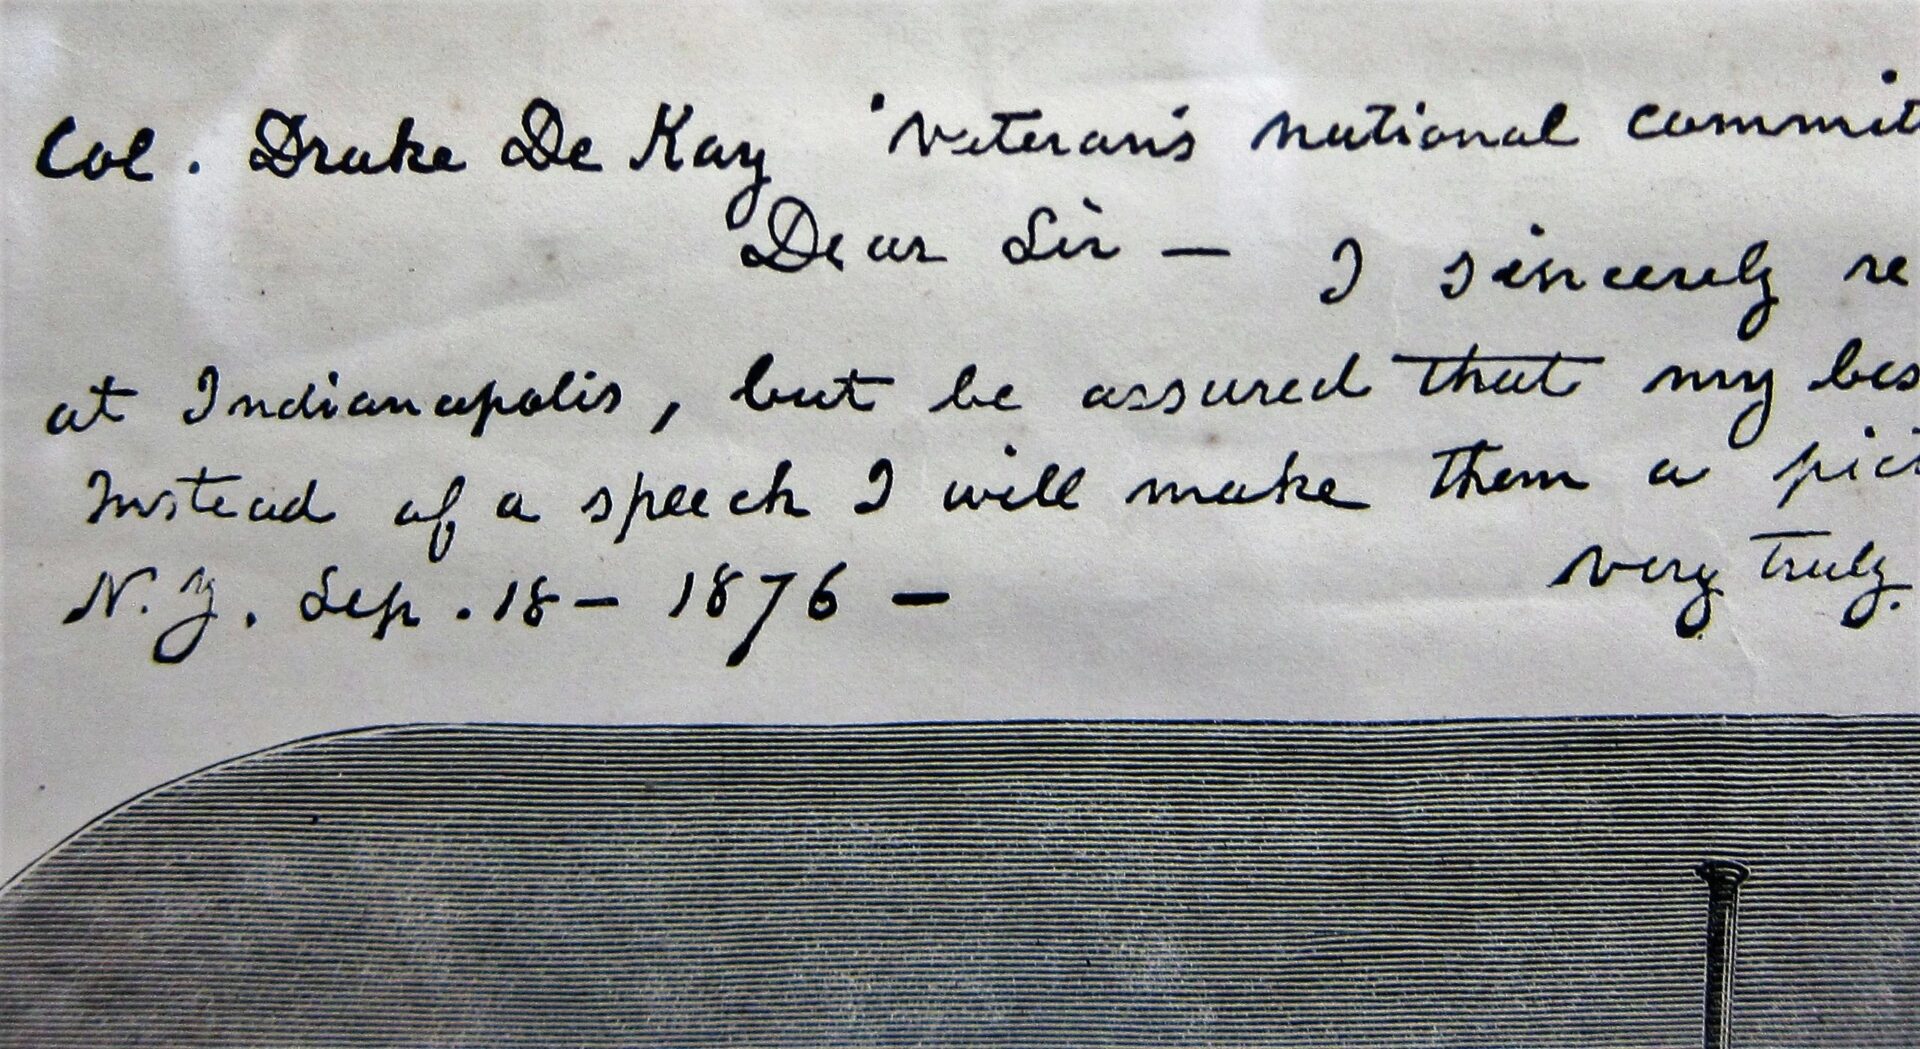 Col. Drake De Kay "Veteran's national commit
Dear Sir — I sincerely re
at Indianapolis, but be assured that my bes
Instead of a speech I will make them a pict
N.Y. Sep. 18 — 1876 —
very truly